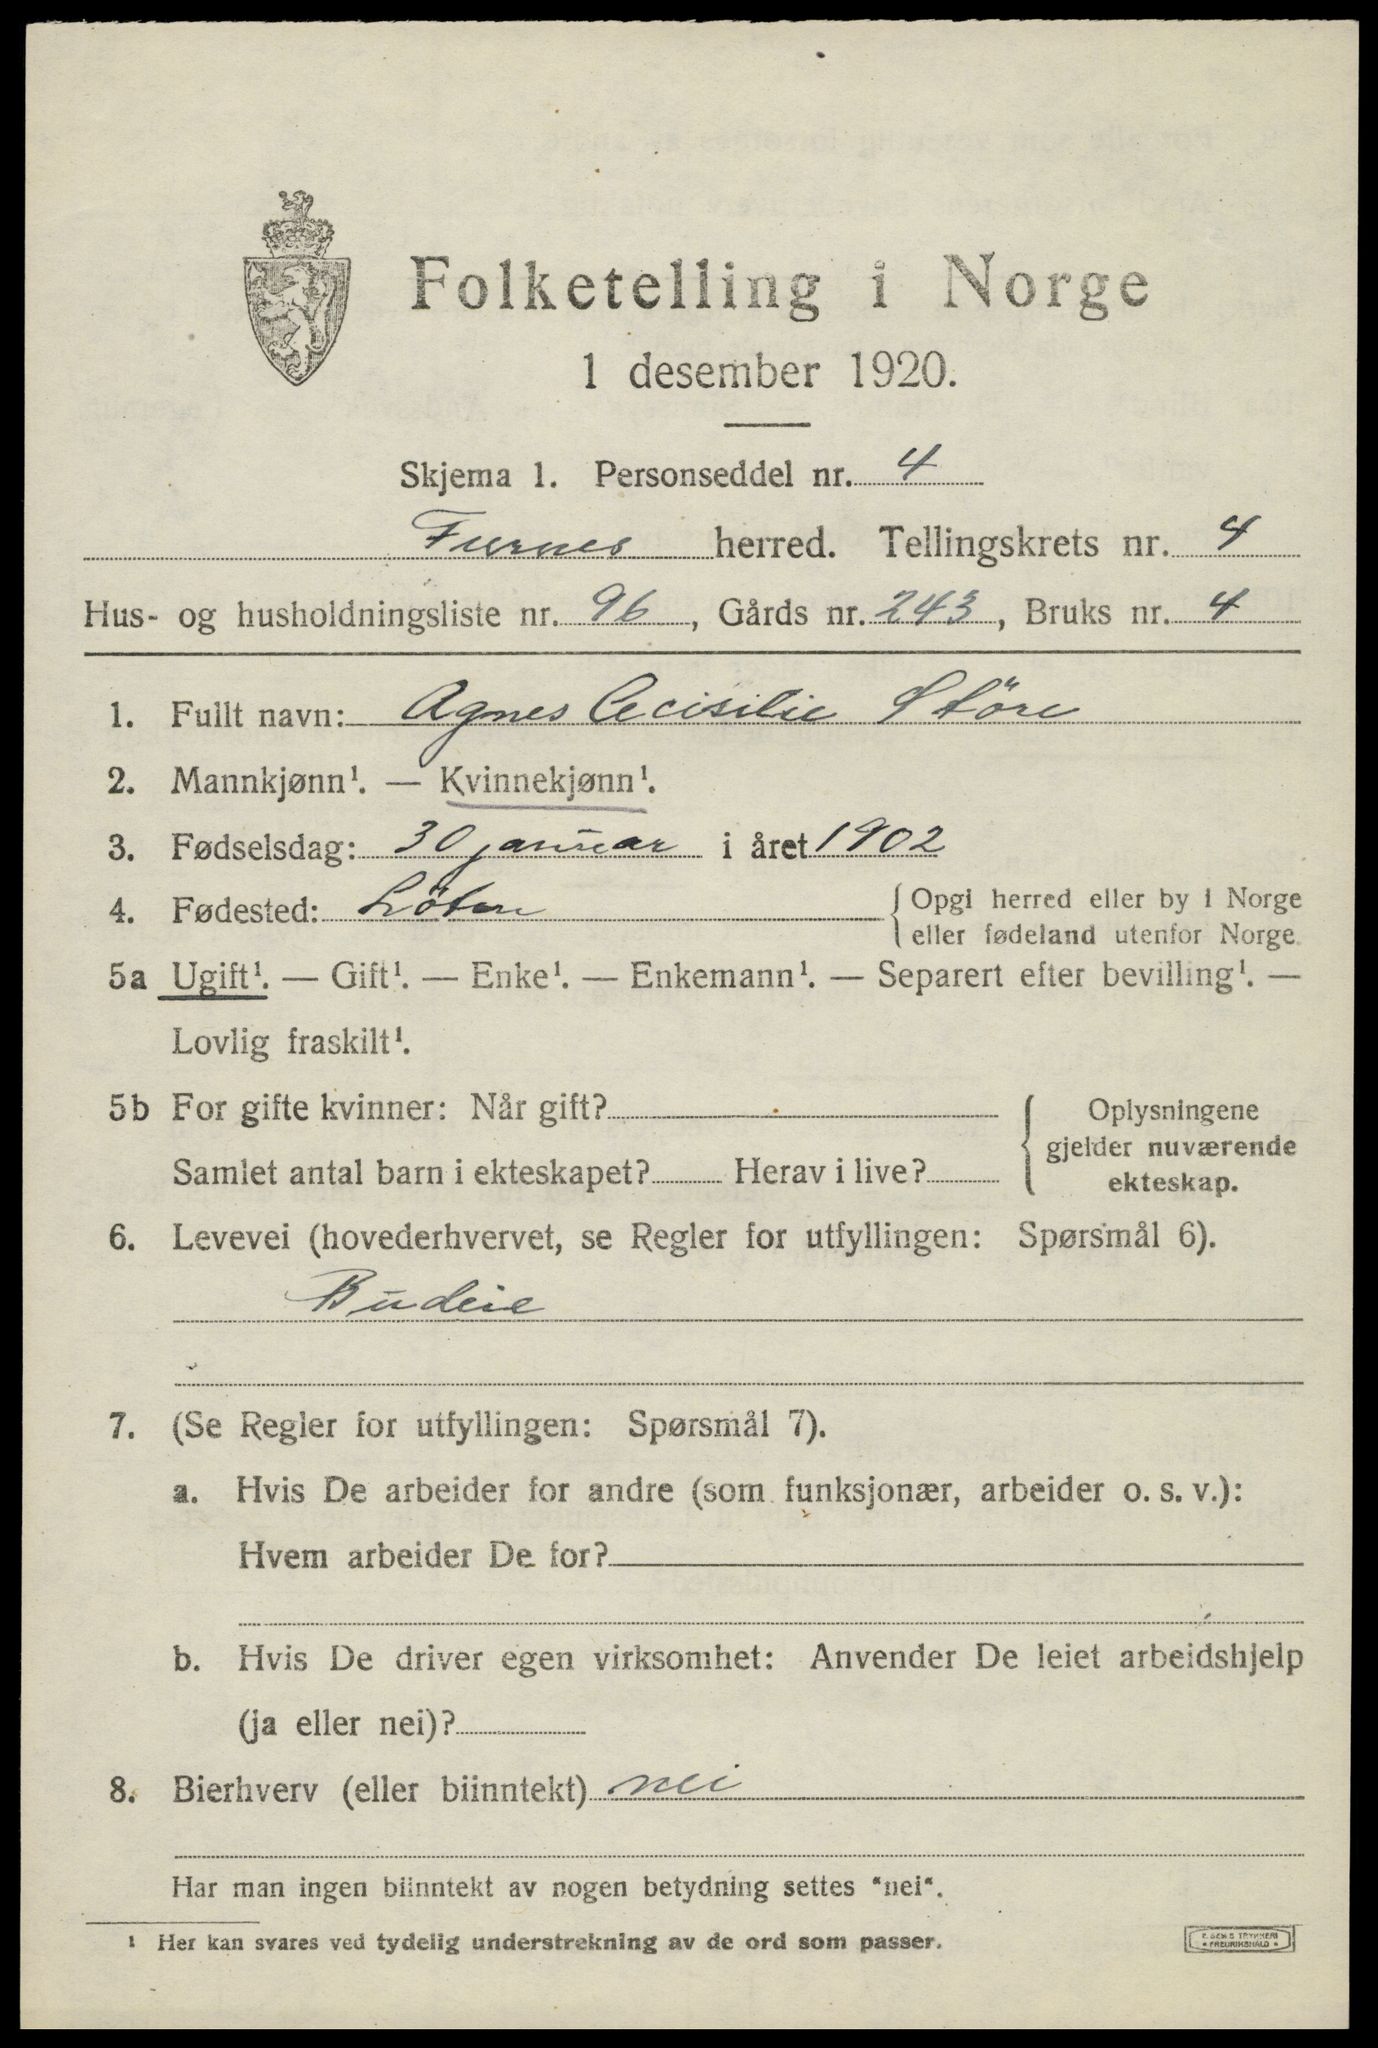 Folketelling i Norge
1 desember 1920.
Skjema 1. Personseddel nr. 4
Furnes herred. Tellingskrets nr. 4
Hus- og husholdningsliste nr. 96, Gårds nr. 243, Bruks nr. 4
1. Fullt navn: Agnes Cecisilie Störe
2. Mannkjønn¹. — Kvinnekjønn¹.
3. Fødselsdag: 30 januar i året 1902
4. Fødested: Löten { Opgi herred eller by i Norge
eller fødeland utenfor Norge.
5a Ugift¹. — Gift¹. — Enke¹. — Enkemann¹. — Separert efter bevilling¹. —
Lovlig fraskilt¹.
5b For gifte kvinner: Når gift?
Samlet antal barn i ekteskapet? Herav i live?
{ Oplysningene
gjelder nuværende
ekteskap.
6. Levevei (hovederhvervet, se Regler for utfyllingen: Spørsmål 6).
Budeie
7. (Se Regler for utfyllingen: Spørsmål 7).
a. Hvis De arbeider for andre (som funksjonær, arbeider o. s. v.):
Hvem arbeider De for?
b. Hvis De driver egen virksomhet: Anvender De leiet arbeidshjelp
(ja eller nei)?
8. Bierhverv (eller biinntekt) nei
Har man ingen biinntekt av nogen betydning settes "nei".
¹ Her kan svares ved tydelig understrekning av de ord som passer.
TRYKKERI
• FREDRIKSHALD •